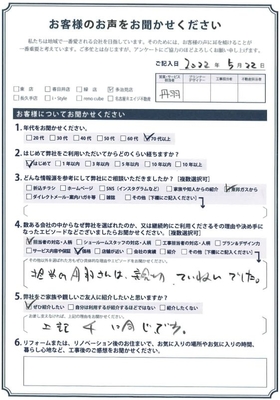 お客様の声をお聞かせください
私たちは地域で一番愛される会社を目指しています。そのためには、お客様の声に耳を傾けることが
一番重要と考えています。ご多忙とは存じますが、アンケートにご協力のほどよろしくお願い申し上げます。
ご記入日 2022年5月22日
丹羽
お客様についてお聞かせください
1. 年代をお聞かせください。
20代 30代 40代 50代 60代 70代以上
2. はじめて弊社をご利用いただいてからどのくらい経ちますか?
はじめて 1年以内 3年以内 5年以内 10年以内 10年以上
3. どんな情報源を参考にして弊社にご相談いただきましたか?【複数選択可】
折込チラシ ホームページ SNS(インスタグラムなど) ご家族や知人からの紹介 東邦ガスから
ダイレクトメール・案内ハガキ等 雑誌 その他(下欄にご記入ください)
4. 数ある会社の中からなぜ弊社を選ばれたのか、又は継続的にご利用くださるその理由や決め手に
なったエピソードなどございましたらお聞かせください。【複数選択可】
担当者の対応・人柄 ショールームスタッフの対応・人柄 工事担当者の対応・人柄 プランやデザイン力
サービス内容や保証 価格 店舗が近い 会社の実績 紹介 その他(下欄にご記入ください)
担当の丹羽さんは、親切、ていねいでした。
5. 弊社をご家族や親しいご友人に紹介したいと思いますか?
ぜひ紹介したい 自分は利用するが紹介するほどではない 紹介したくない
上記 4 と同じです。
6. リフォームまたは、リノベーション後のお住まいで、お気に入りの場所やお気に入りの時間、
暮らし心地など、工事後のご感想をお聞かせください。